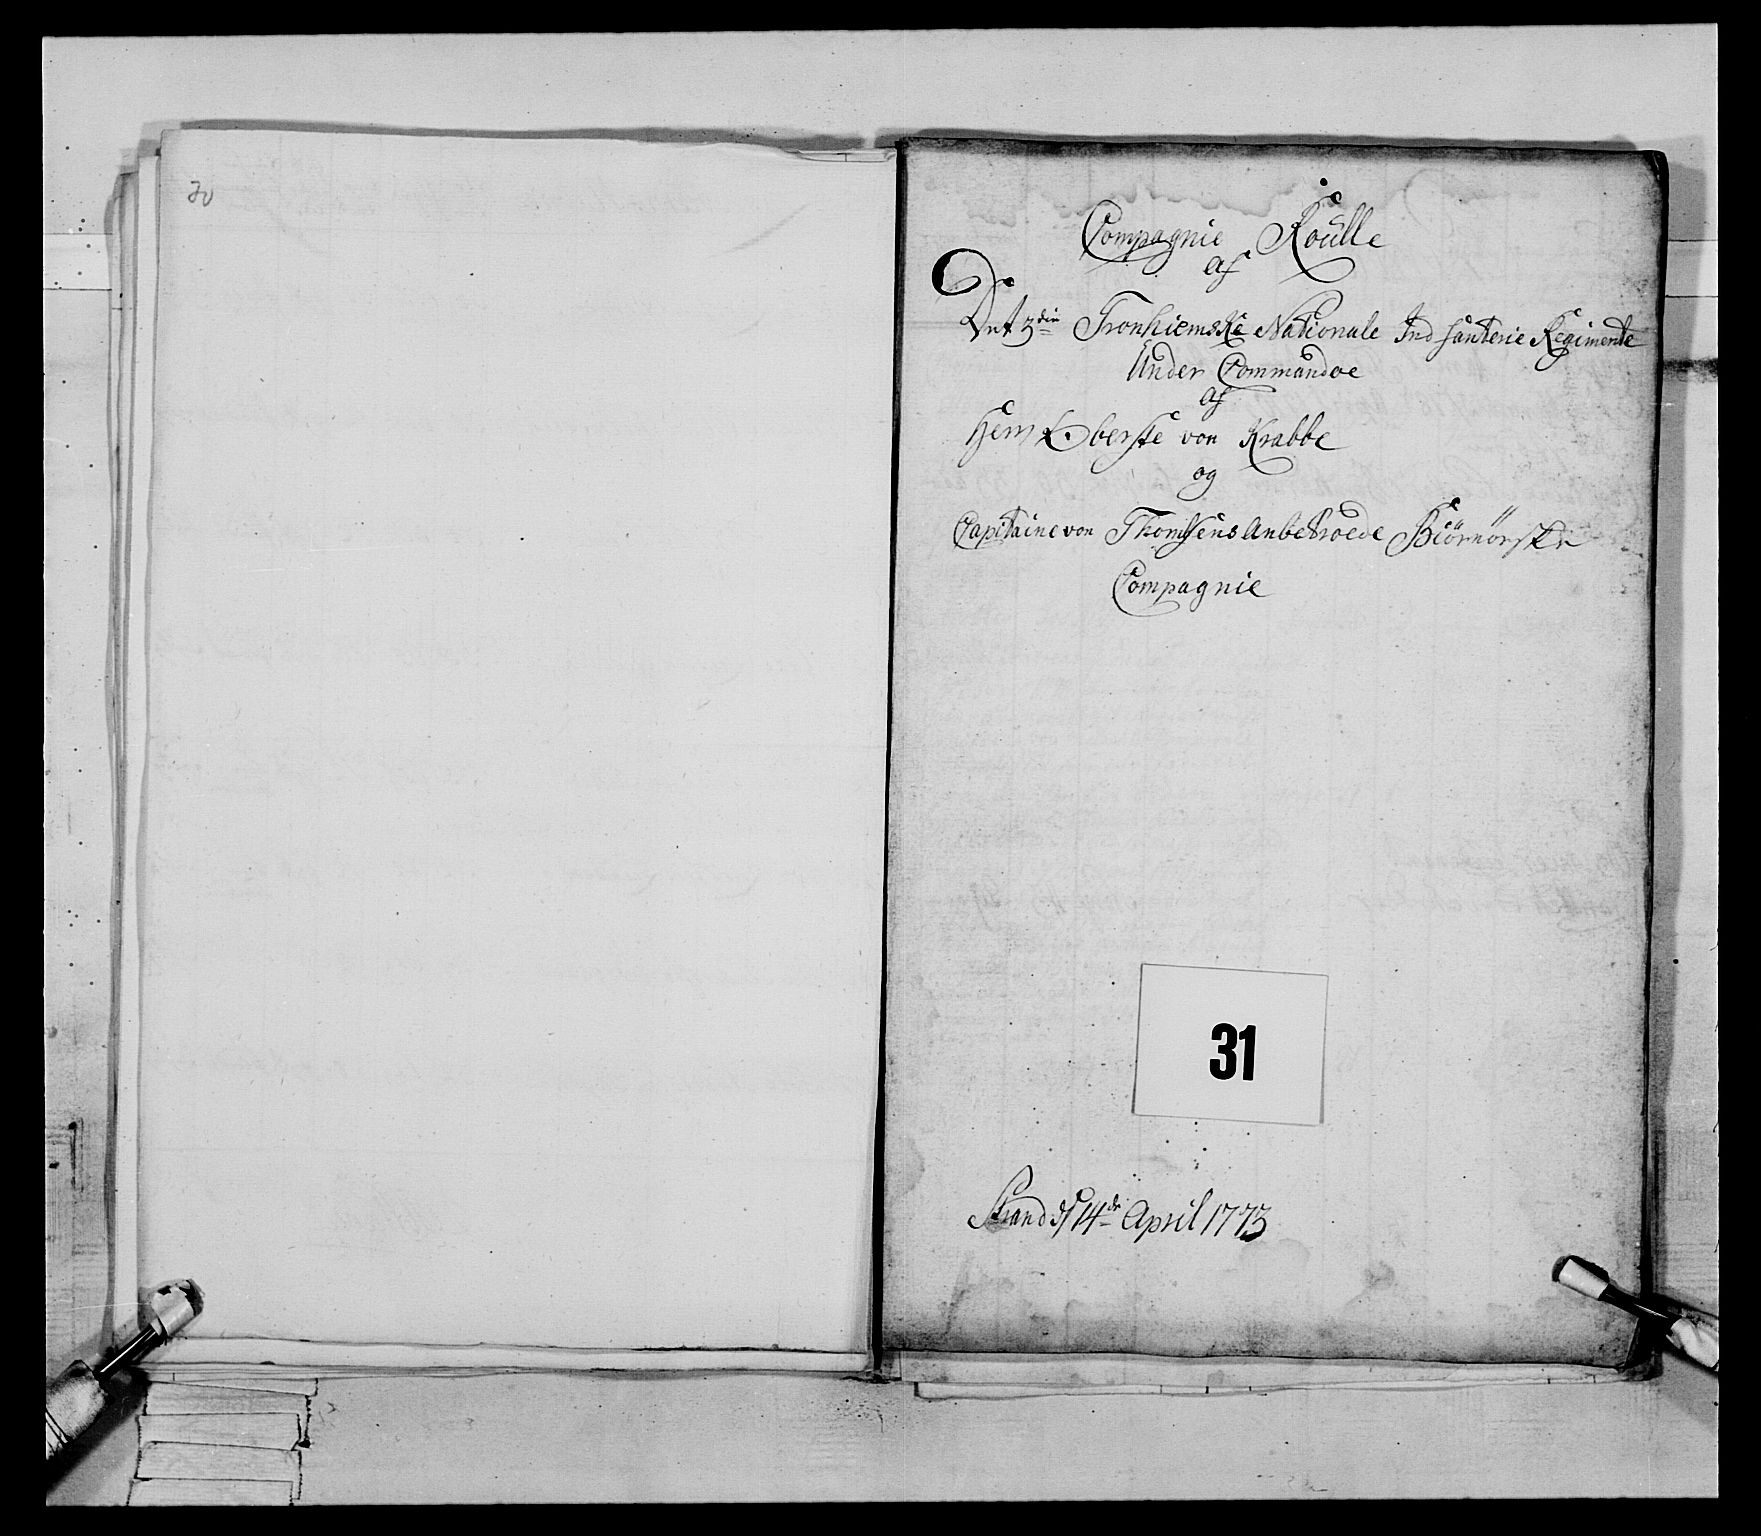 30
Compagnie Roülle
af
Det 3die Tronhiemske Nationale Indfanterie Regimente
Under Commandoe
af
Herr Oberste von Krabbe
og
Capitaine von Thomsens Anbetroede Biörnörske
Compagnie
31
Strand d 14de April 1773